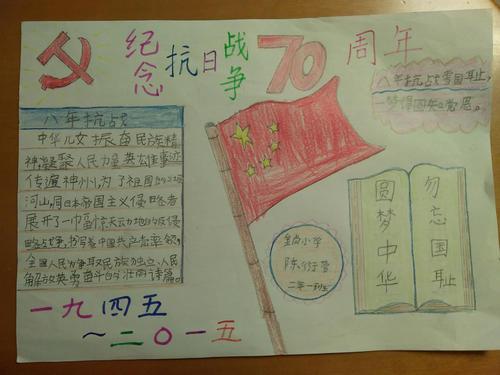 纪念抗日战争70周年
八年抗战雪国耻,
一梦得圆知党恩。
八年抗战
中华儿女振奋民族精
神,凝聚人民力量英雄事迹
传遍神州,为了祖国的
河山,同日本帝国主义侵略者
展开了一场惊天动地的反侵
略战争,书写着中国共产党率领
全国人民力争取民族独立,人民
解放英勇奋斗的壮丽诗篇。
勿忘国耻
圆梦中华
小学
陈
二年一班
一九四五
~二〇一五